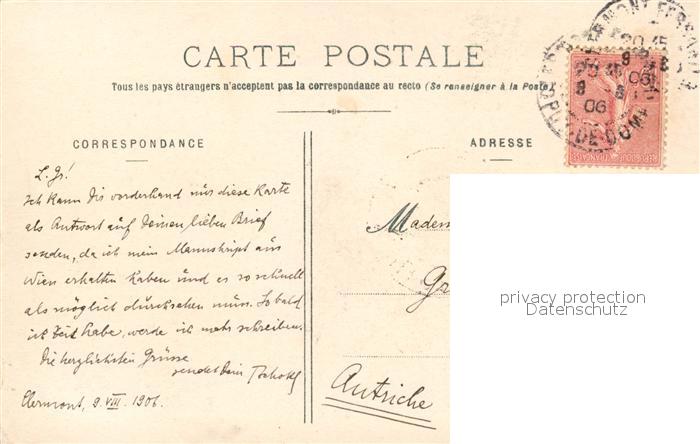 CARTE POSTALE
Tous les pays étrangers n'acceptent pas la correspondance au recto (Se renseigner à la Poste)
CORRESPONDANCE
ADRESSE
L. G!
Ich kann Dir vorderhand nur diese Karte
als Antwort auf Deinen lieben Brief
senden, da ich mein Manuskript aus
Wien erhalten habe und es so schnell
als möglich durchsehen muss. Sobald
ich Zeit habe, werde ich mehr schreiben.
Die herzlichsten Grüsse
sendet Dein
Clermont, 9. VIII. 1906.
Madem
Gr
Autriche
REPUBLIQUE FRANÇAISE
PUY-DE-DOME
privacy protection
Datenschutz